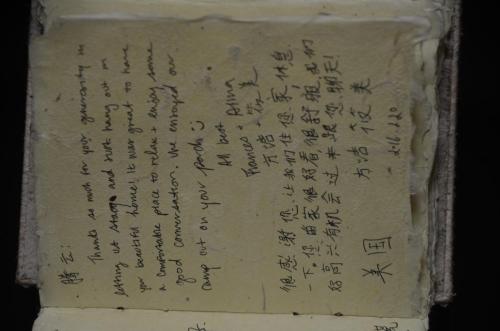 腾云:
Thanks so much for your generosity in
letting us stay and rest hang out in
your beautiful home! It was great to have
a comfortable place to relax + enjoy some
good conversation. We enjoyed our
camp out on your porch :)
All best
Frances + Anna
方洁 筱美
很感谢您让我们住您家休息
一下。您的家很好看很舒服,我们
好高兴有机会过来跟您聊天!
方洁 筱美
美国